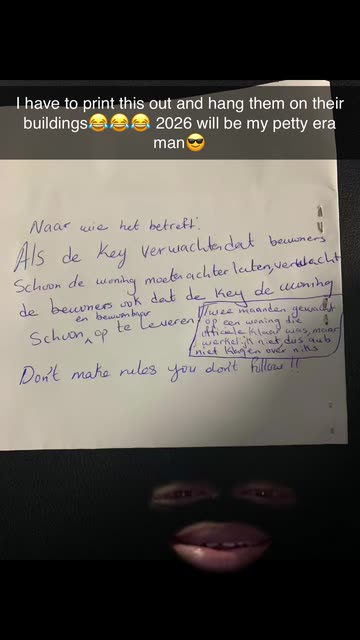 I have to print this out and hang them on their
buildings😂😂😂 2026 will be my petty era
man😎
Naar wie het betreft!
Als de Key verwachten dat bewoners
Schoon de woning moeten achter laten, verwacht
de bewoners ook dat de Key de woning
en bewoonbaar
Schoon ^ op te leveren
Twee maanden gewacht
op een woning die
officiele klaar was, maar
werkelijk niet dus aub
niet klagen over niks
Don't make rules you don't follow!!